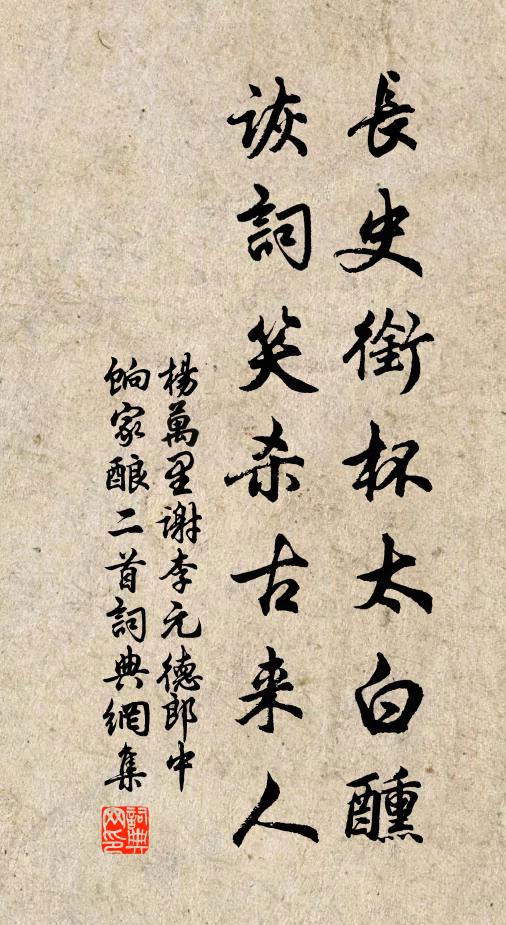 長史銜杯太白醺
詼詞笑杀古来人
楊萬里谢李元德郎中
餉家酿二首詞典網集
詞典网印